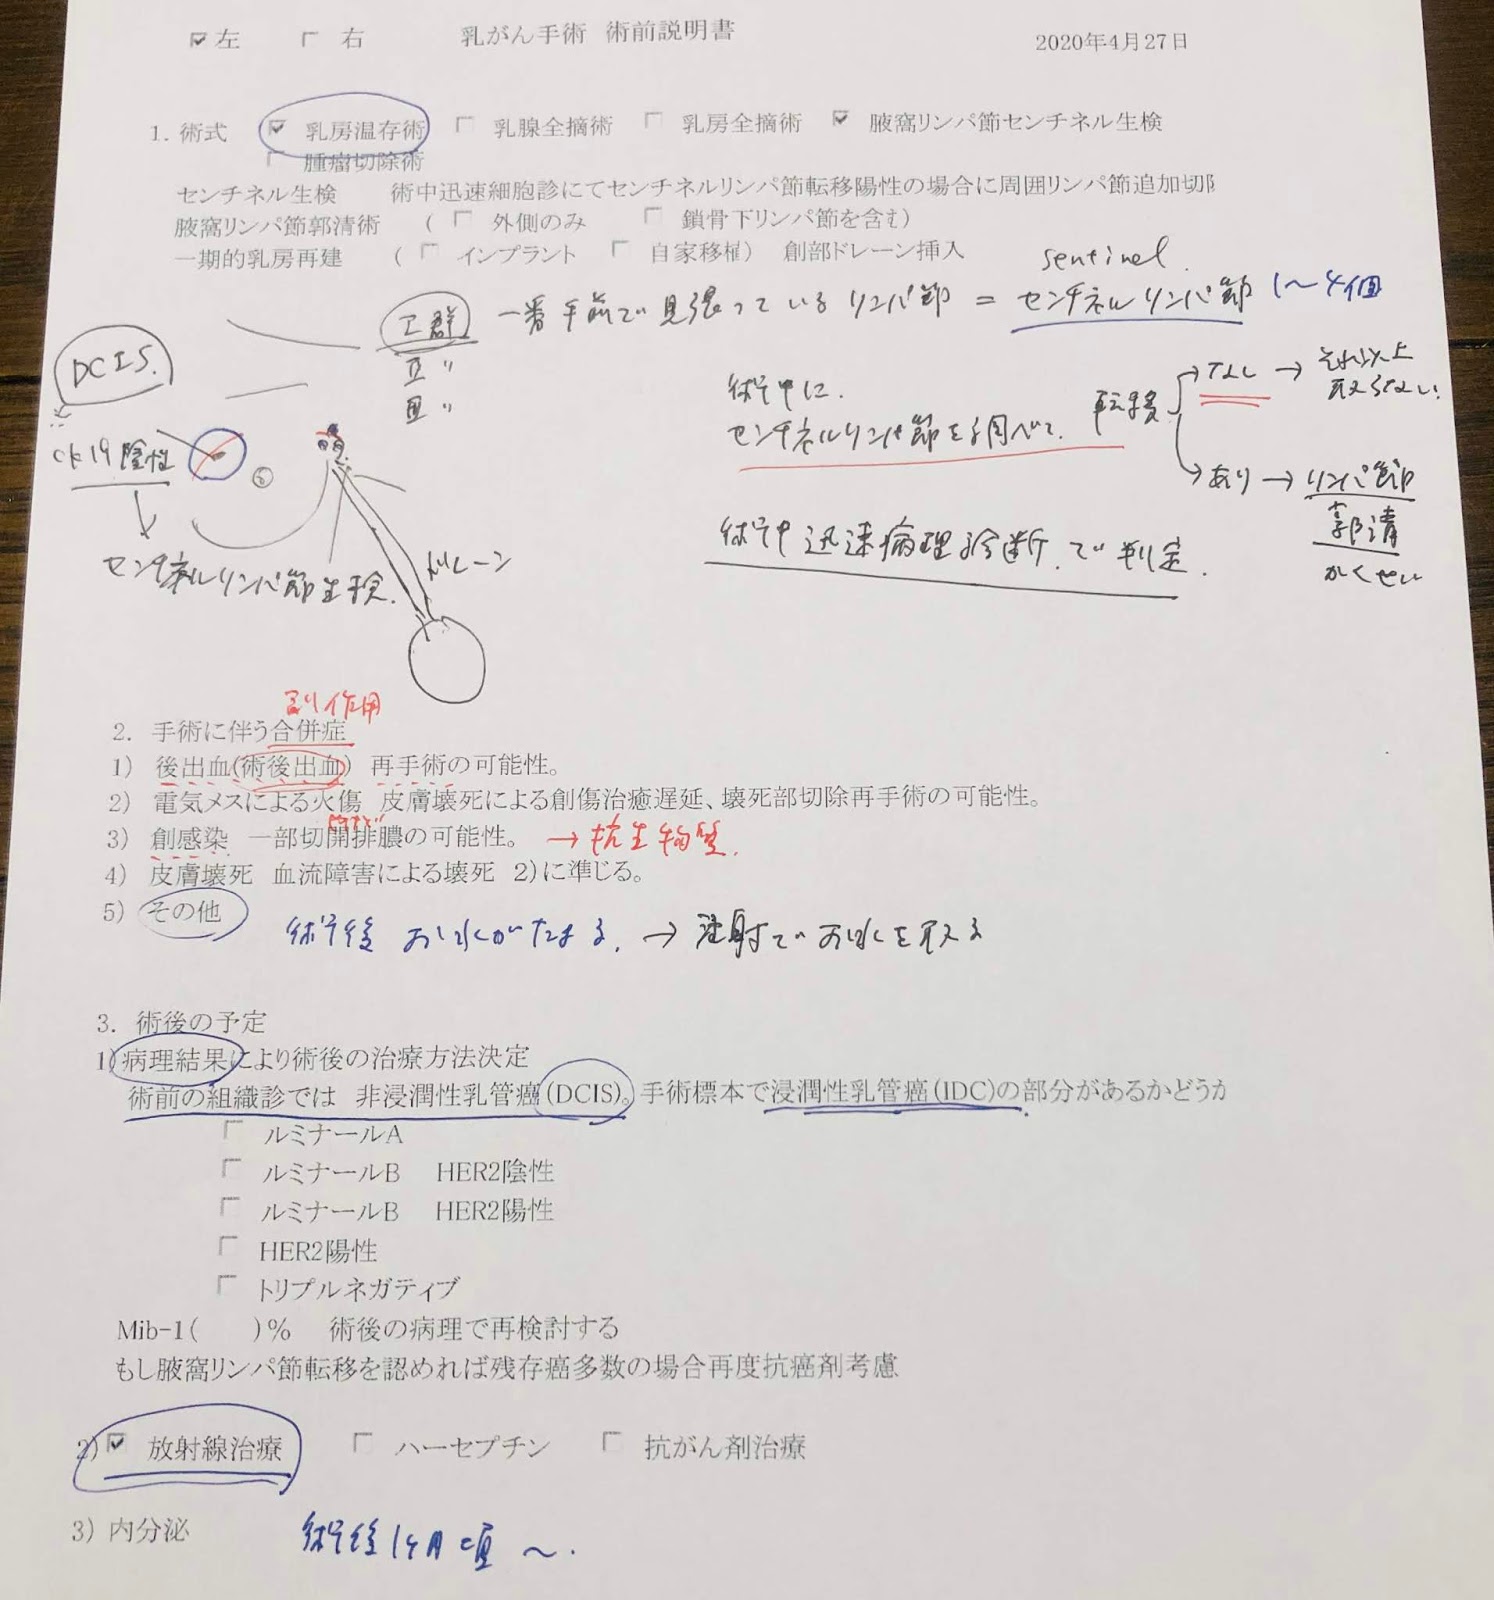 左　右　乳がん手術　術前説明書　2020年4月27日
1. 術式　乳房温存術　乳腺全摘術　乳房全摘術　腋窩リンパ節センチネル生検
腫瘤切除術
センチネル生検　術中迅速細胞診にてセンチネルリンパ節転移陽性の場合に周囲リンパ節追加切
腋窩リンパ節郭清術　(　外側のみ　鎖骨下リンパ節を含む)
一期的乳房再建　(　インプラント　自家移植)　創部ドレーン挿入
sentinel
I群　一番手前で見張っているリンパ節 = センチネルリンパ節 1〜4個
II 〃
III 〃
DCIS.
ck19陰性
センチネルリンパ節生検.
ドレーン
術中に
センチネルリンパ節を調べて.　転移
なし → それ以上取らない.
あり → リンパ節
郭清
かくせい
術中迅速病理診断で判定.
副作用
2. 手術に伴う合併症
1) 後出血(術後出血)　再手術の可能性。
2) 電気メスによる火傷　皮膚壊死による創傷治癒遅延、壊死部切除再手術の可能性。
3) 創感染　一部切開排膿の可能性。 → 抗生物質.
4) 皮膚壊死　血流障害による壊死　2)に準じる。
5) その他
術後 お水がたまる. → 注射でお水を取る
3. 術後の予定
1)病理結果により術後の治療方法決定
術前の組織診では　非浸潤性乳管癌(DCIS)。手術標本で浸潤性乳管癌(IDC)の部分があるかどうか
ルミナールA
ルミナールB　HER2陰性
ルミナールB　HER2陽性
HER2陽性
トリプルネガティブ
Mib-1(　　)%　術後の病理で再検討する
もし腋窩リンパ節転移を認めれば残存癌多数の場合再度抗癌剤考慮
2) 放射線治療　ハーセプチン　抗がん剤治療
3) 内分泌　術後1ヶ月頃 〜.